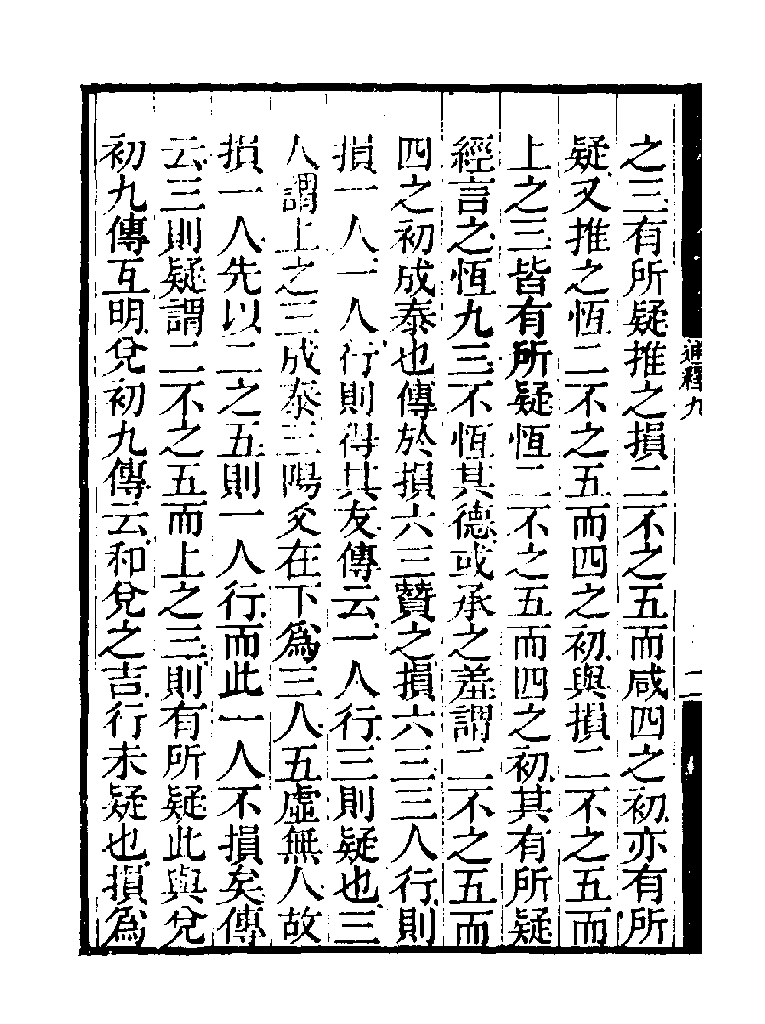 之三有所疑推之損二不之五而咸四之初亦有所
疑又推之恆二不之五而四之初與損二不之五而
上之三皆有所疑恆二不之五而四之初其有所疑
經言之恆九三不恆其德或承之羞謂二不之五而
四之初成泰也傳於損六三贊之損六三三人行則
損一人一人行則得其友傳云一人行三則疑也三
人謂上之三成泰三陽爻在下爲三人五虛無人故
損一人先以二之五則一人行而此一人不損矣傳
云三則疑謂二不之五而上之三則有所疑此與兌
初九傳互明兌初九傳云和兌之吉行未疑也損爲
通釋九
二